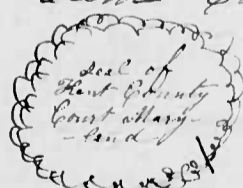 Seal of
Kent County
Court Mary-
-land